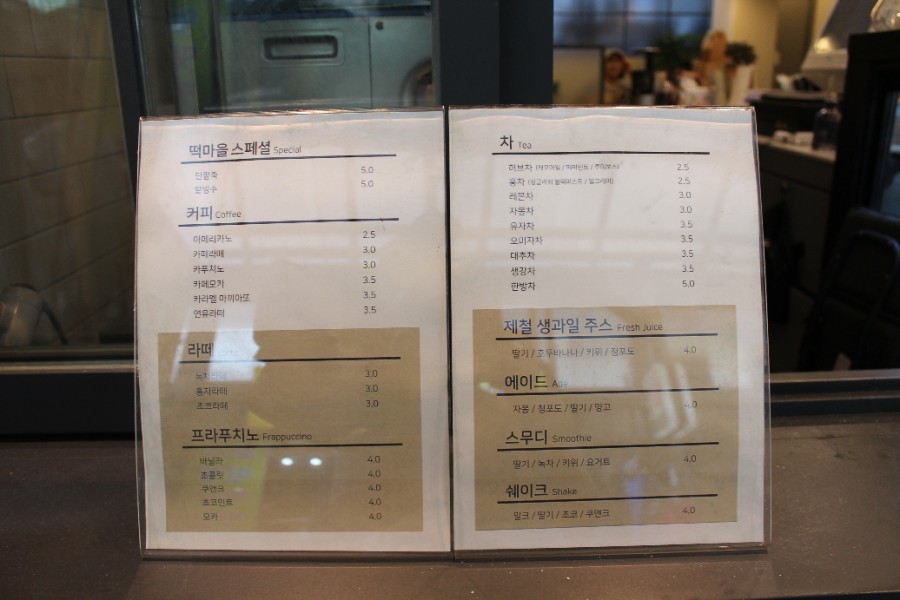 떡마을 스페셜 Special
단팥죽 5.0
팥빙수 5.0
커피 Coffee
아메리카노 2.5
카페라떼 3.0
카푸치노 3.0
카페모카 3.5
카라멜 마끼아또 3.5
연유라떼 3.5
라떼
녹차라떼 3.0
홍차라떼 3.0
초코라떼 3.0
프라푸치노 Frappuccino
바닐라 4.0
초콜릿 4.0
쿠앤크 4.0
초코민트 4.0
모카 4.0
차 Tea
허브차 (캐모마일 / 페퍼민트 / 루이보스) 2.5
홍차 2.5
레몬차 3.0
자몽차 3.0
유자차 3.5
오미자차 3.5
대추차 3.5
생강차 3.5
한방차 5.0
제철 생과일 주스 Fresh Juice
딸기 / 호두바나나 / 키위 / 청포도 4.0
에이드 Ade
자몽 / 청포도 / 딸기 / 망고 4.0
스무디 Smoothie
딸기 / 녹차 / 키위 / 요거트 4.0
쉐이크 Shake
밀크 / 딸기 / 초코 / 쿠앤크 4.0